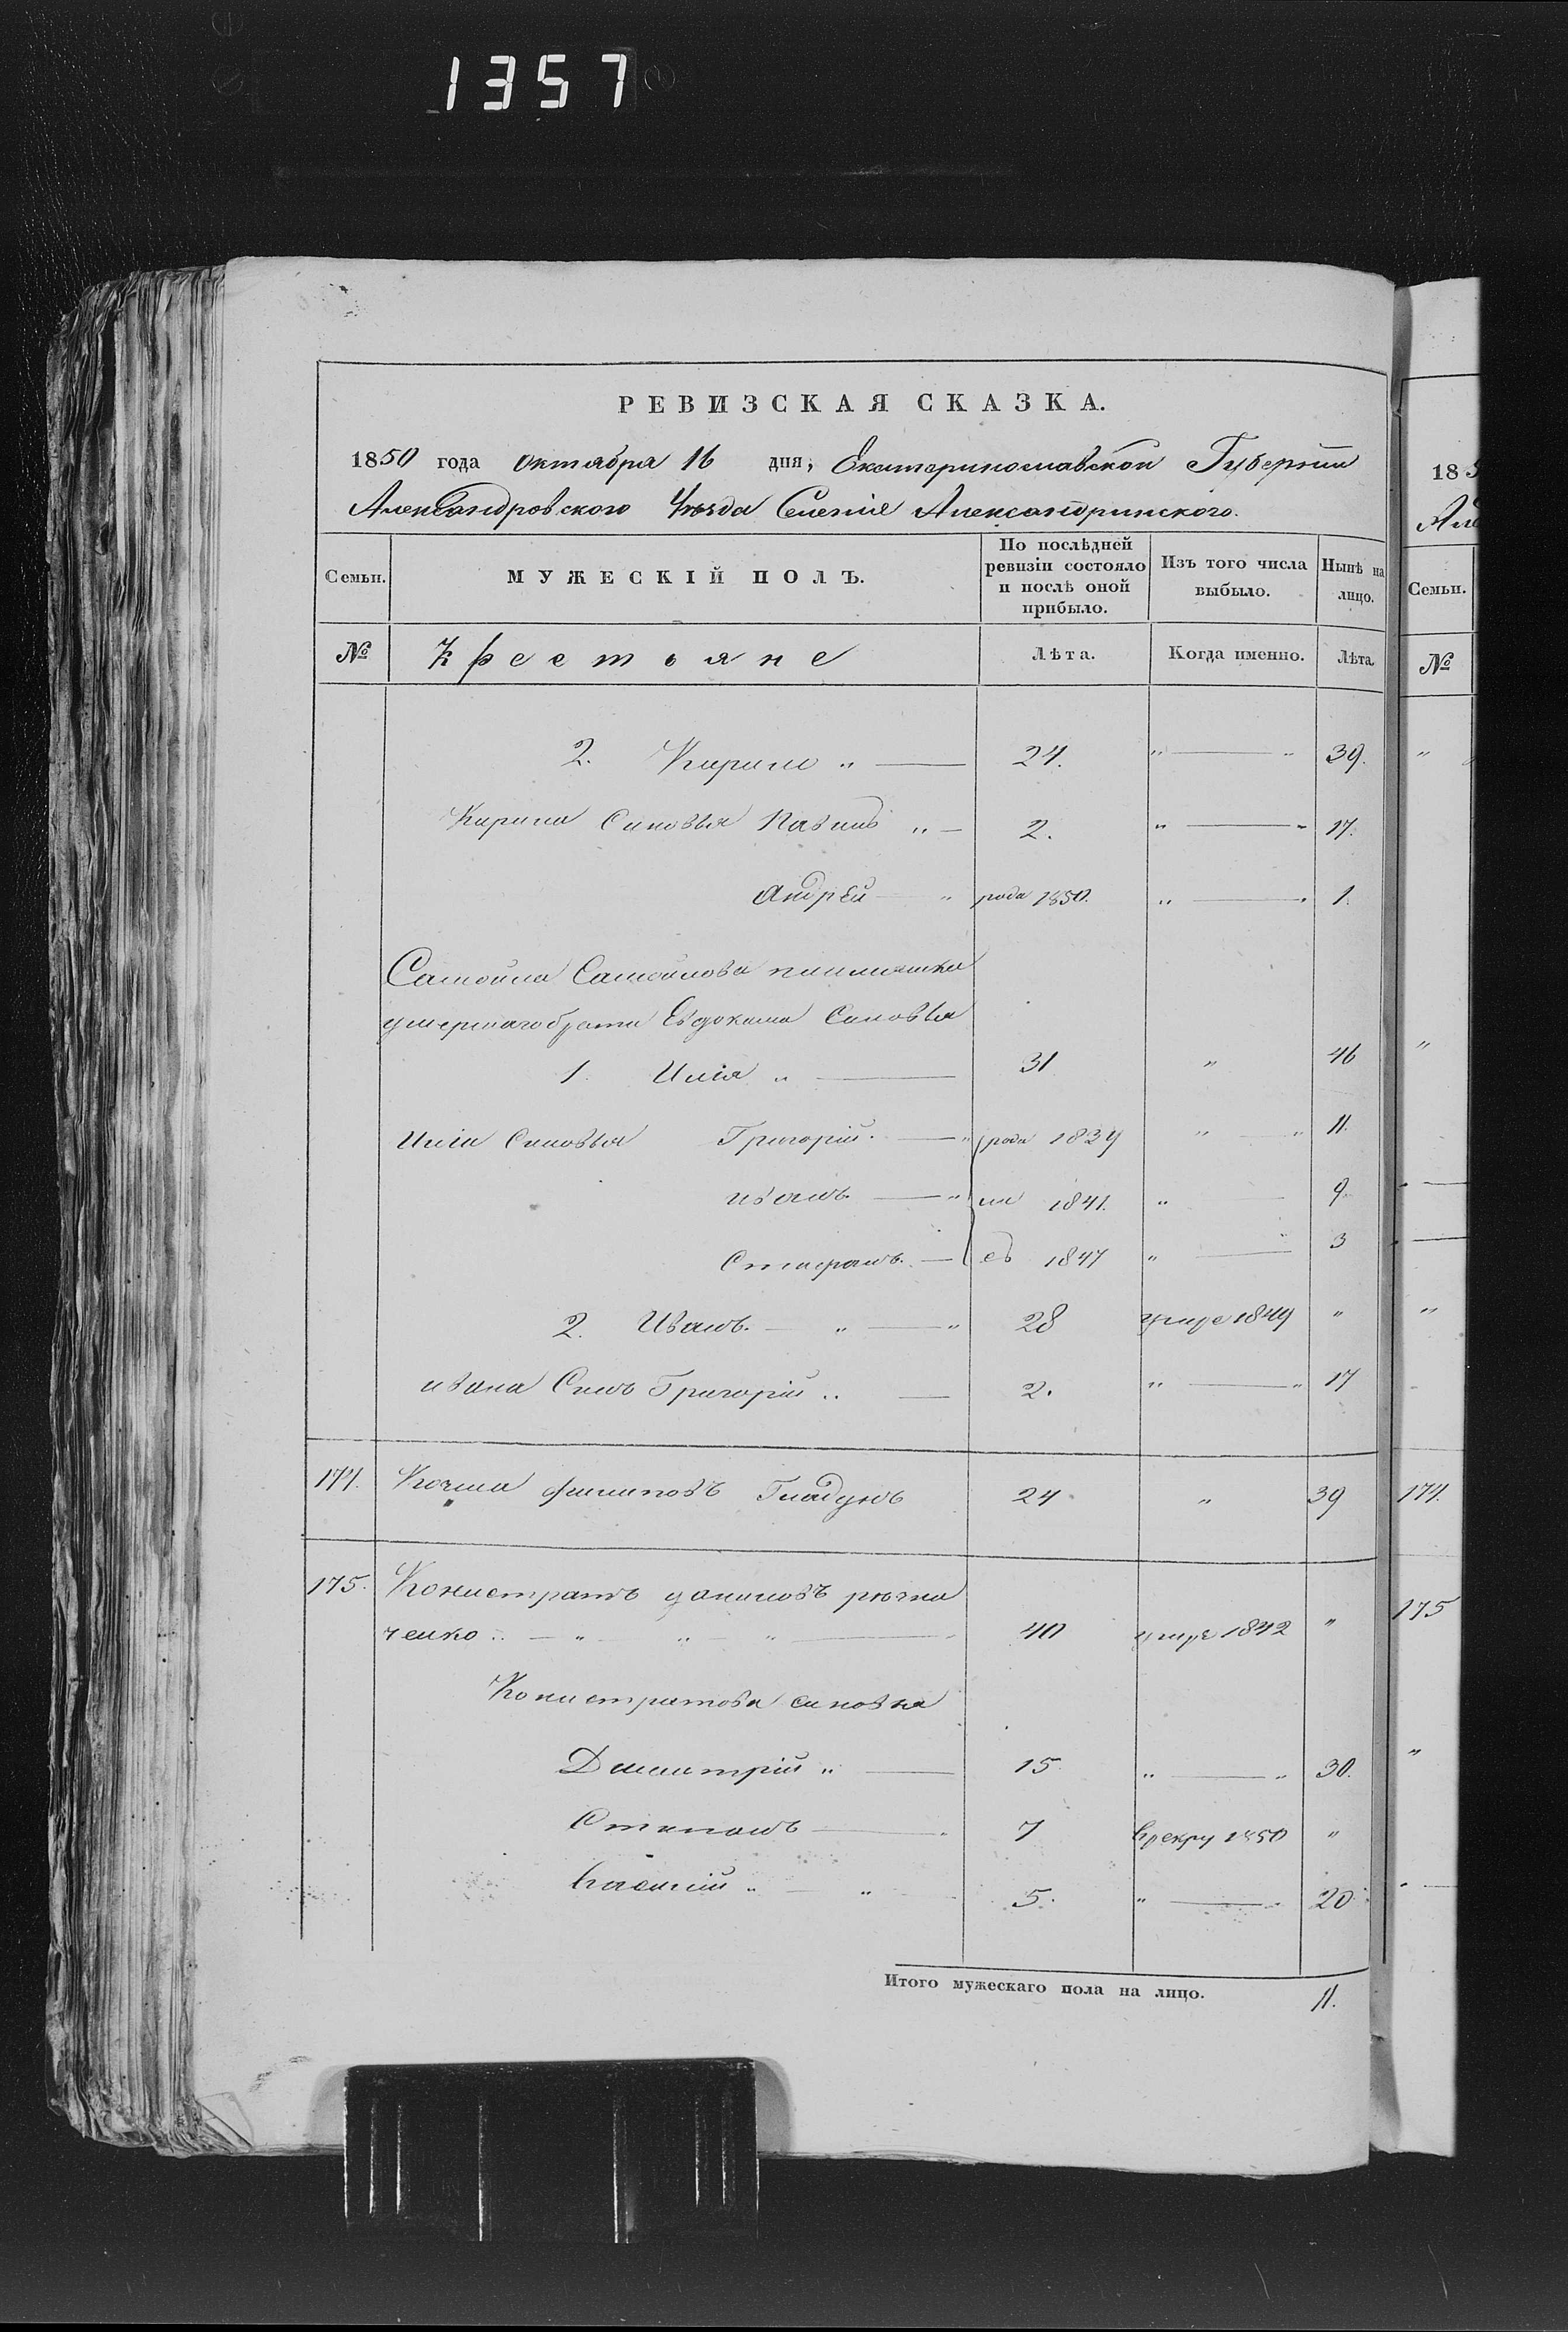 1357
РЕВИЗСКАЯ СКАЗКА.
1850 года октября 16 дня, Екатеринославской Губернии
Александровского Уѣзда Селенія Александринского.
Семьи. МУЖЕСКІЙ ПОЛЪ. По послѣдней ревизіи состояло и послѣ оной прибыло. Изъ того числа выбыло. Нынѣ на лицо.
№ Крестьяне Лѣта. Когда именно. Лѣта.
2. Кирило " — 24. " — " 39.
Кирила Синовья Павилъ " — 2. " — " 17.
Андрей — " рода 1850. " — " 1.
Самойла Самойлова
умершаго брата Евдокима Синовья
1. Илія " — 31 " 46
Иліи Синовья Григорій. — " рода 1839 " — " 11.
иванъ — " ил 1841. " — 9.
Стефанъ. — съ 1847 " — 3
2. Иванъ. — " — " 28 умре 1849 "
ивана Синъ Григорій " — 2. " — " 17
174. Козма филиповъ Гладунъ 24 " 39
175. Конистратъ даниловъ
ченко " — " — " — " — 40 умре 1842 "
Конистратова синовья
Димитрій " — 15 " — " 30.
Степанъ — " 7 Врекру 1850 "
Василій " — " 5. " — " 20
Итого мужескаго пола на лицо. 11.
185
Але
Семьи.
№
174.
175